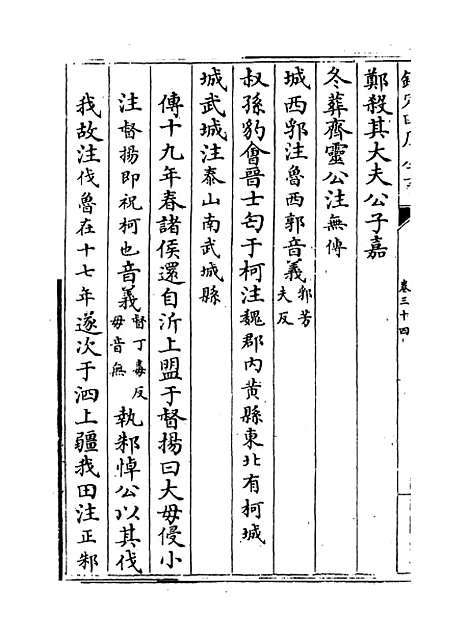 卷三十四
鄭殺其大夫公子嘉
冬葬齊靈公注無傳
城西郛注魯西郭音義郛芳夫反
叔孫豹會晉士匄于柯注魏郡内黄縣東北有柯城
城武城注泰山南武城縣
傳十九年春諸侯還自沂上盟于督揚曰大毋侵小
注督揚即祝柯也音義督丁毒反毋音無執邾悼公以其伐
我故注伐魯在十七年遂次于泗上疆我田注正邾